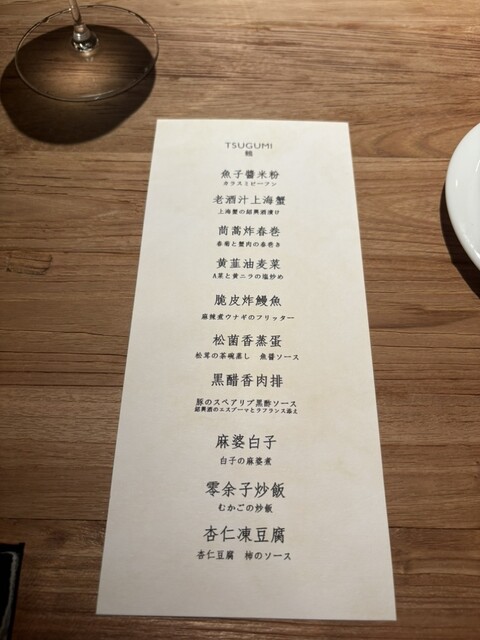 TSUGUMI
鶫
魚子醬米粉
カラスミビーフン
老酒汁上海蟹
上海蟹の紹興酒漬け
茼蒿炸春巻
春菊と蟹肉の春巻き
黄韮油麦菜
A菜と黄ニラの塩炒め
脆皮炸鰻魚
麻辣煮ウナギのフリッター
松菌香蒸蛋
松茸の茶碗蒸し 魚醤ソース
黒醋香肉排
豚のスペアリブ黒酢ソース
紹興酒のエスプーマとラフランス添え
麻婆白子
白子の麻婆煮
零余子炒飯
むかごの炒飯
杏仁凍豆腐
杏仁豆腐 柿のソース